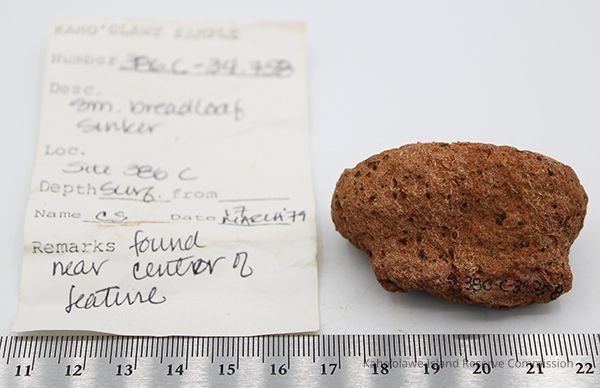 KAHO'OLAWE SAMPLE
Number 386.C-34.75B
Desc.
sm. breadloaf
sinker
Loc.
Site 386 C
Depth surf. from
Name CS Date 17 MARCH '79
Remarks found
near center of
feature
Kahoolawe Island Reserve Commission
11 12 13 14 15 16 17 18 19 20 21 22